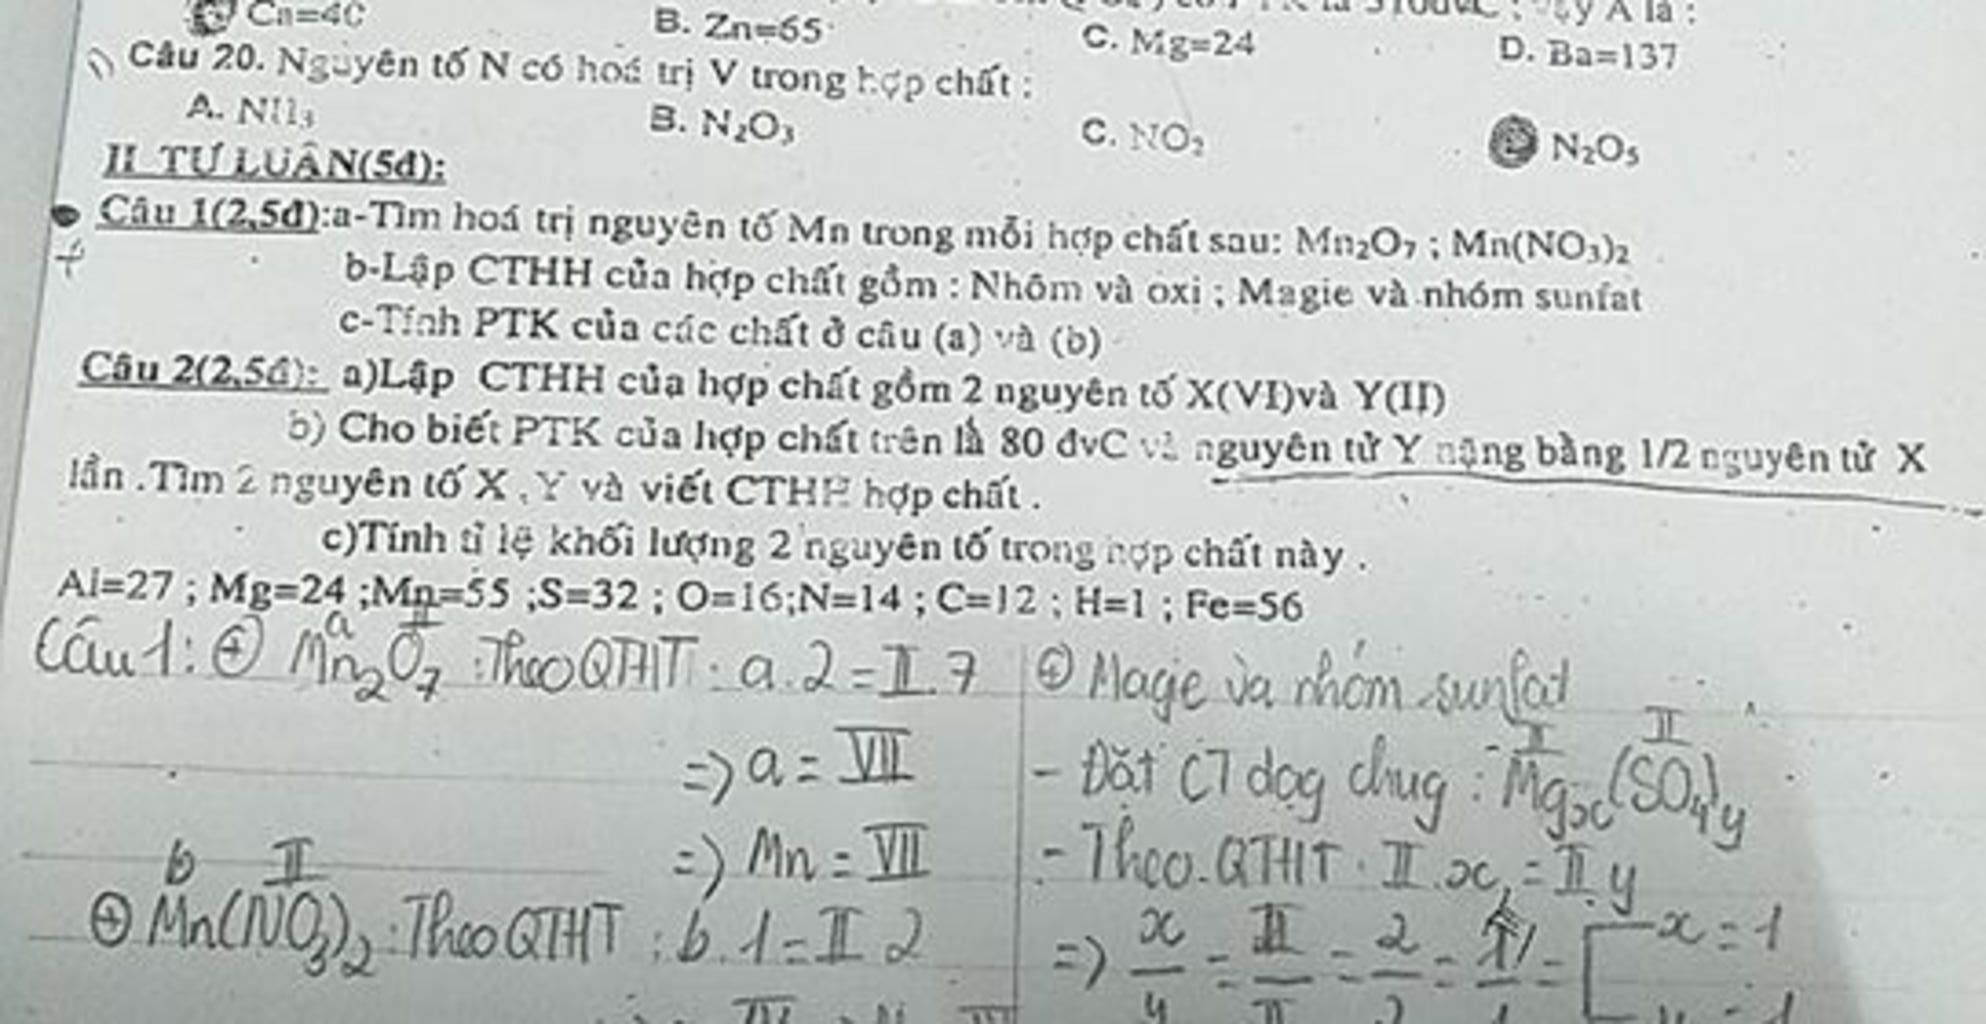 Ca=40 B. Zn=65 C. Mg=24 D. Ba=137
Câu 20. Nguyên tố N có hoá trị V trong hợp chất :
A. NH₃ B. N₂O₃ C. NO₂ D N₂O₅
II. TỰ LUẬN(5đ):
Câu 1(2,5đ):a-Tìm hoá trị nguyên tố Mn trong mỗi hợp chất sau: Mn₂O₇ ; Mn(NO₃)₂
b-Lập CTHH của hợp chất gồm : Nhôm và oxi ; Magie và nhóm sunfat
c-Tính PTK của các chất ở câu (a) và (b)
Câu 2(2,5đ): a)Lập CTHH của hợp chất gồm 2 nguyên tố X(VI)và Y(II)
b) Cho biết PTK của hợp chất trên là 80 đvC và nguyên tử Y nặng bằng 1/2 nguyên tử X
lần .Tìm 2 nguyên tố X , Y và viết CTHH hợp chất .
c)Tính tỉ lệ khối lượng 2 nguyên tố trong hợp chất này .
Al=27 ; Mg=24 ;Mn=55 ;S=32 ; O=16;N=14 ; C=12 ; H=1 ; Fe=56
a II
Câu 1: ⊕ Mn₂O₇ : Theo QTHT : a.2 = II.7
=> a = VII
=> Mn = VII
b II
⊕ Mn(NO₃)₂ : Theo QTHT : b.1 = II.2
⊕ Magie và nhóm sunfat
II II
- Đặt CT dạg chug : Mgₓ(SO₄)y
- Theo QTHT : II.x = II.y
=> x/y = II/II = 2/2 = 1/1 = x = 1
y = 1